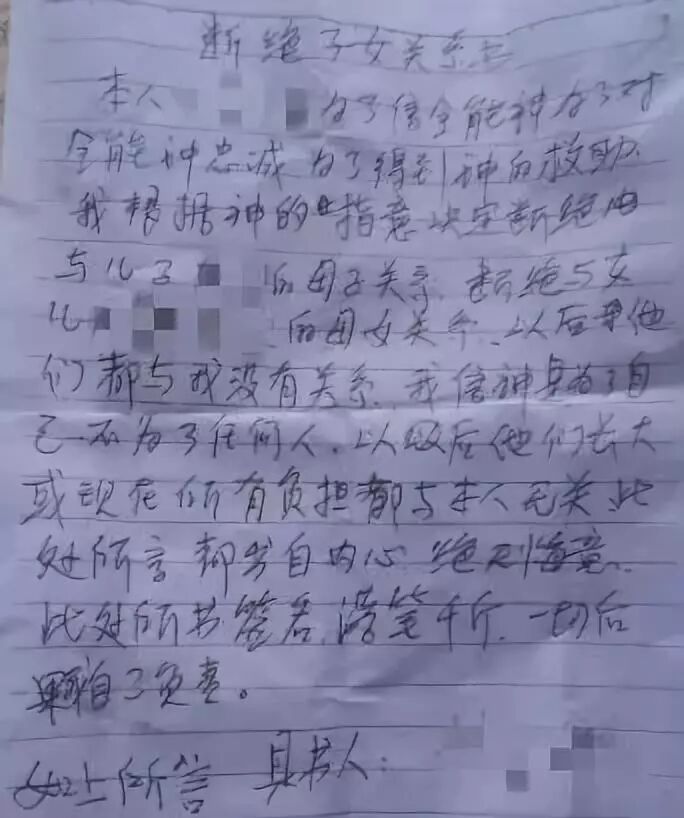 断绝子女关系书
本人 为了信全能神为了对
全能神忠诚 为了得到神的救助、
我根据神的指意决定断绝
与儿子 的母子关系、断绝与女
儿 的母女关系、以后 他
们都与我没有关系、我信神是为了自
己不为了任何人、以 后他们长大
或现在所有负担都与本人无关、此
处所言 都出自内心 绝不 意、
此处所书签名、落笔千斤、一切后
果 自己负责。
如上所言 具书人: